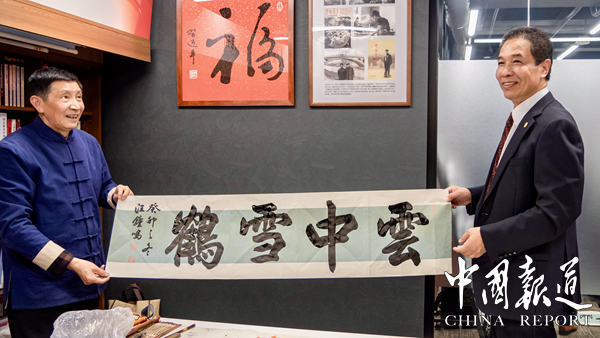 福
雲中雪鶴
癸卯之冬
中國報道
CHINA REPORT